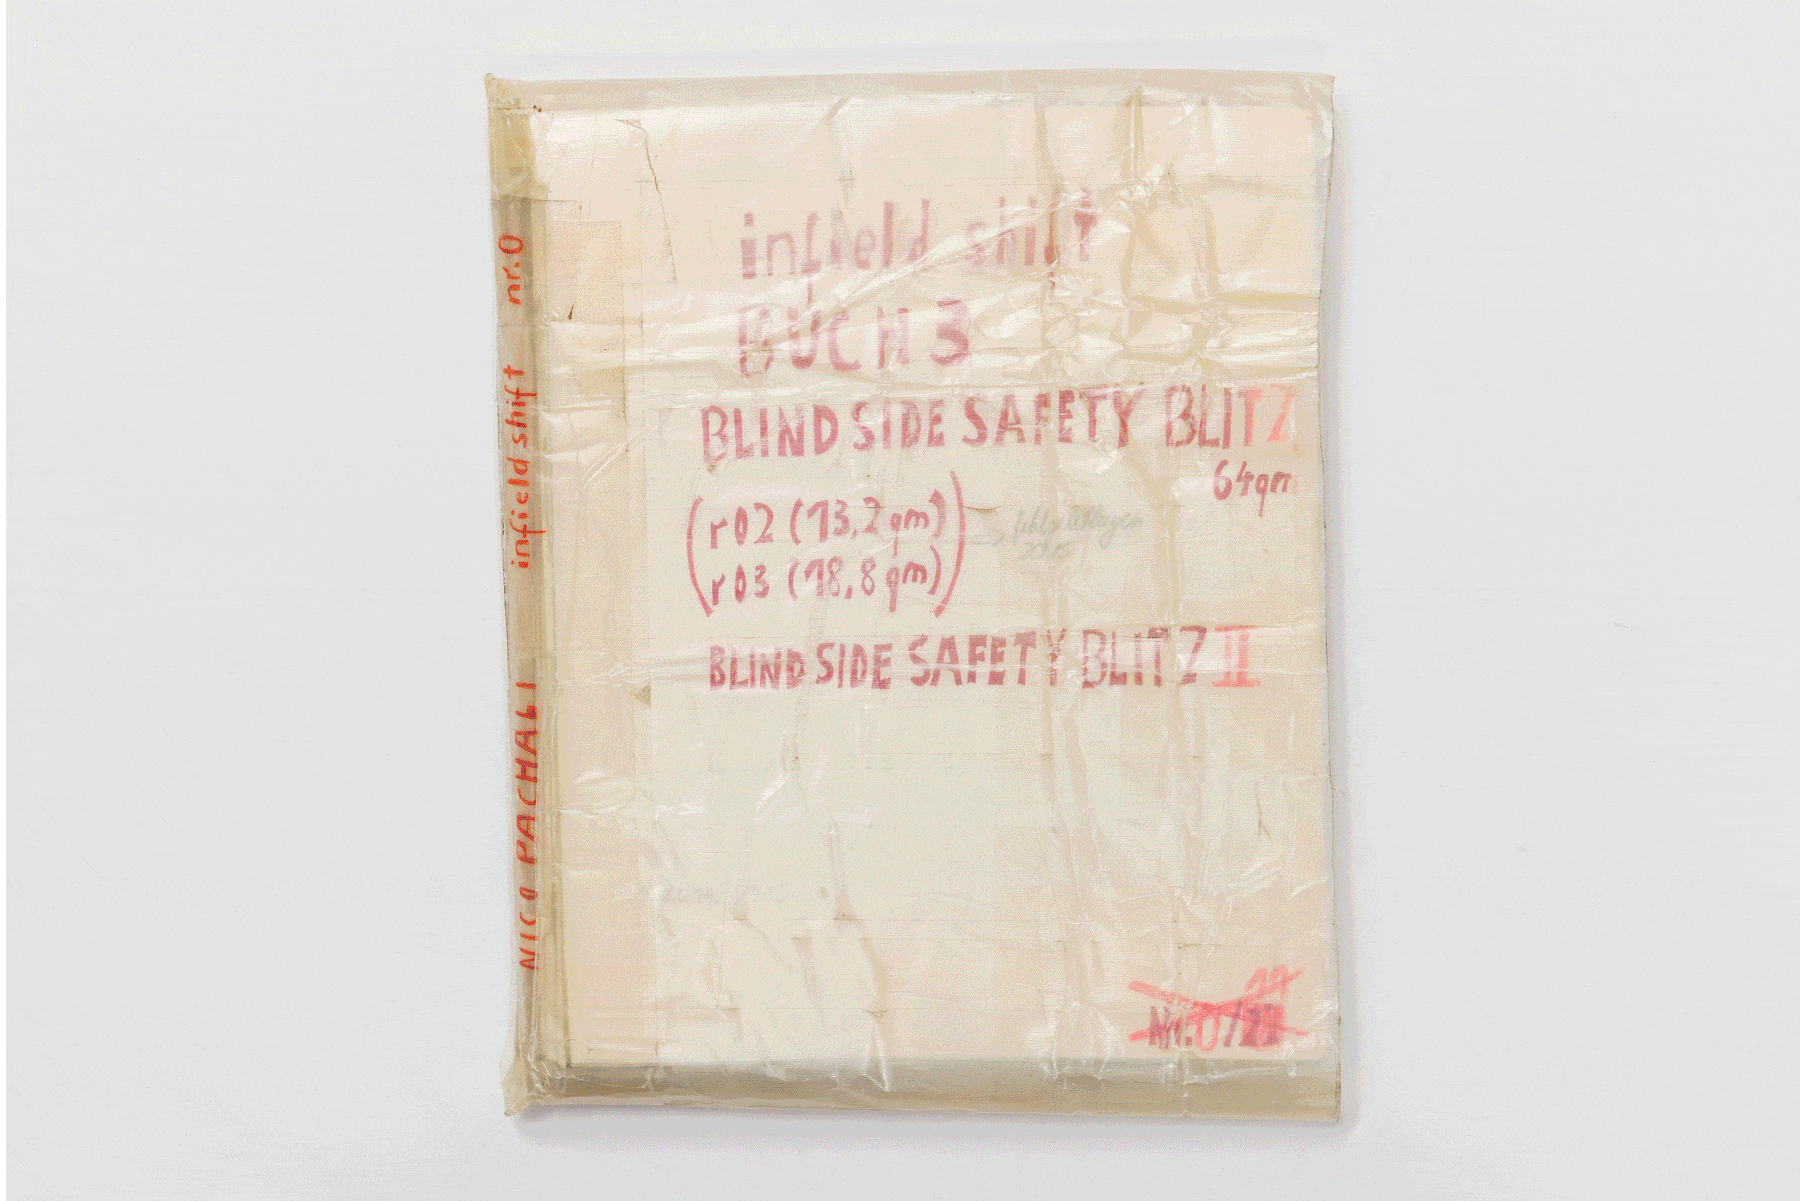 infield shift
BUCH 3
BLIND SIDE SAFETY BLITZ
64qm
(r02 (13,2 qm)
r03 (18,8 qm))
BLIND SIDE SAFETY BLITZ II
Nr.0/
NICO PACHALI infield shift nr.0